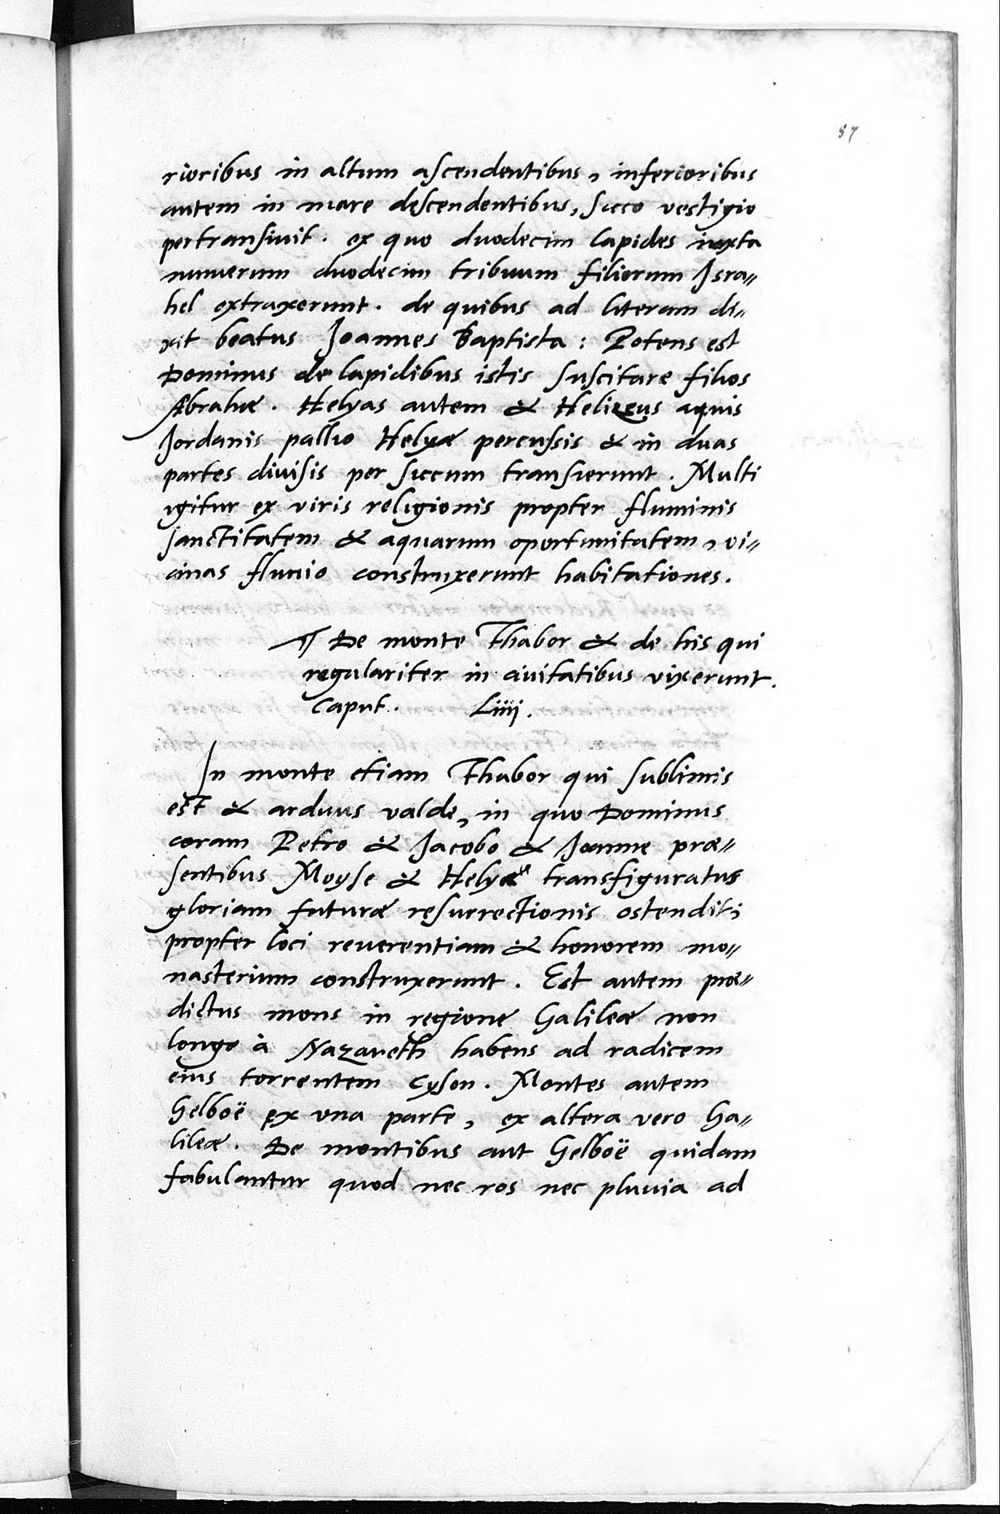 57
rioribus in altum ascendentibus, inferioribus
autem in mare descendentibus, sicco vestigio
pertransiuit. ex quo duodecim lapides iuxta
numerum duodecim tribuum filiorum Isra-
hel extraxerunt. de quibus ad literam di-
xit beatus Joannes Baptista: Potens est
Dominus de lapidibus istis suscitare filios
Abrahæ. Helyas autem & Helizeus aquis
Jordanis pallio Helyæ percussis & in duas
partes divisis per siccum transierunt. Multi
igitur ex viris religionis propter fluminis
sanctitatem & aquarum oportunitatem, vi-
cinas fluuio construxerunt habitationes.
¶ De monte Thabor & de his qui
regulariter in ciuitatibus vixerunt.
Caput. Liiij.
In monte etiam Thabor qui sublimis
est & arduus valde, in quo Dominus
coram Petro & Jacobo & Joanne præ-
sentibus Moyse & Helya transfiguratus
gloriam futuræ resurrectionis ostendit;
propter loci reuerentiam & honorem mo-
nasterium construxerunt. Est autem præ-
dictus mons in regione Galileæ non
longe à Nazareth habens ad radicem
eius torrentem Cyson. Montes autem
Gelboë ex vna parte, ex altera vero Ga-
lileæ. De montibus aut Gelboë quidam
fabulantur quod nec ros nec pluuia ad